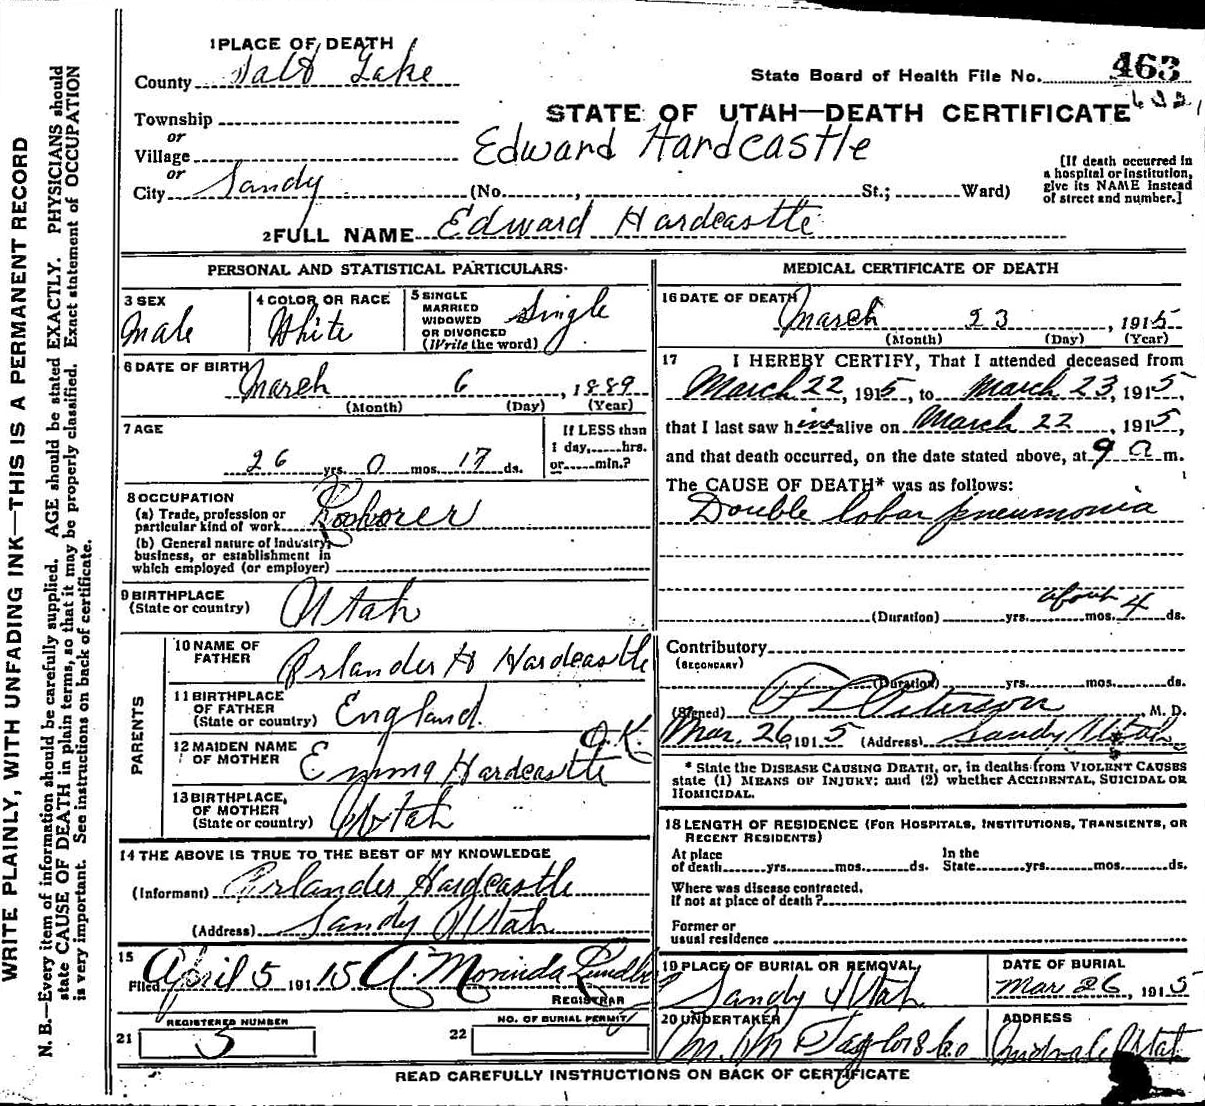 1 PLACE OF DEATH
County Salt Lake
State Board of Health File No. 463
Township
or
Village
or
City Sandy (No. , St.; Ward)
STATE OF UTAH—DEATH CERTIFICATE
Edward Hardcastle
[If death occurred in
a hospital or institution,
give its NAME instead
of street and number.]
2 FULL NAME Edward Hardcastle
PERSONAL AND STATISTICAL PARTICULARS
3 SEX
Male
4 COLOR OR RACE
White
5 SINGLE
MARRIED
WIDOWED
OR DIVORCED
(Write the word)
Single
6 DATE OF BIRTH
March 6, 1889
(Month) (Day) (Year)
7 AGE
26 yrs. 0 mos. 17 ds.
If LESS than
1 day, hrs.
or min.?
8 OCCUPATION
(a) Trade, profession or
particular kind of work
(b) General nature of Industry,
business, or establishment in
which employed (or employer)
9 BIRTHPLACE
(State or country) Utah
PARENTS
10 NAME OF
FATHER Orlander H Hardcastle
11 BIRTHPLACE
OF FATHER
(State or country) England.
12 MAIDEN NAME
OF MOTHER Emma Hardcastle O.K.
13 BIRTHPLACE,
OF MOTHER
(State or country) Utah
14 THE ABOVE IS TRUE TO THE BEST OF MY KNOWLEDGE
(Informant) Orlander Hardcastle
(Address) Sandy Utah
15
Filed April 5 1915 A. Morinda
REGISTRAR
REGISTERED NUMBER
21 3
NO. OF BURIAL PERMIT
22
MEDICAL CERTIFICATE OF DEATH
16 DATE OF DEATH
March 23, 1915
(Month) (Day) (Year)
17 I HEREBY CERTIFY, That I attended deceased from
March 22, 1915, to March 23, 1915,
that I last saw him alive on March 22, 1915,
and that death occurred, on the date stated above, at 9 a m.
The CAUSE OF DEATH* was as follows:
Double lobar pneumonia
(Duration) yrs. about mos. 4 ds.
Contributory
(SECONDARY)
(Duration) yrs. mos. ds.
(Signed) Peterson M. D.
Mar. 26, 1915 (Address) Sandy Utah
* State the DISEASE CAUSING DEATH, or, in deaths from VIOLENT CAUSES
state (1) MEANS OF INJURY; and (2) whether ACCIDENTAL, SUICIDAL OR
HOMICIDAL.
18 LENGTH OF RESIDENCE (FOR HOSPITALS, INSTITUTIONS, TRANSIENTS, OR
RECENT RESIDENTS)
At place
of death yrs. mos. ds.
In the
State yrs. mos. ds.
Where was disease contracted,
if not at place of death?
Former or
usual residence
19 PLACE OF BURIAL OR REMOVAL
Sandy Utah
DATE OF BURIAL
Mar 26, 1915
20 UNDERTAKER
M. M Taylor & Co
ADDRESS
Midvale Utah
READ CAREFULLY INSTRUCTIONS ON BACK OF CERTIFICATE
WRITE PLAINLY, WITH UNFADING INK—THIS IS A PERMANENT RECORD
N. B.—Every item of information should be carefully supplied. AGE should be stated EXACTLY. PHYSICIANS should
state CAUSE OF DEATH in plain terms, so that it may be properly classified. Exact statement of OCCUPATION
is very important. See instructions on back of certificate.